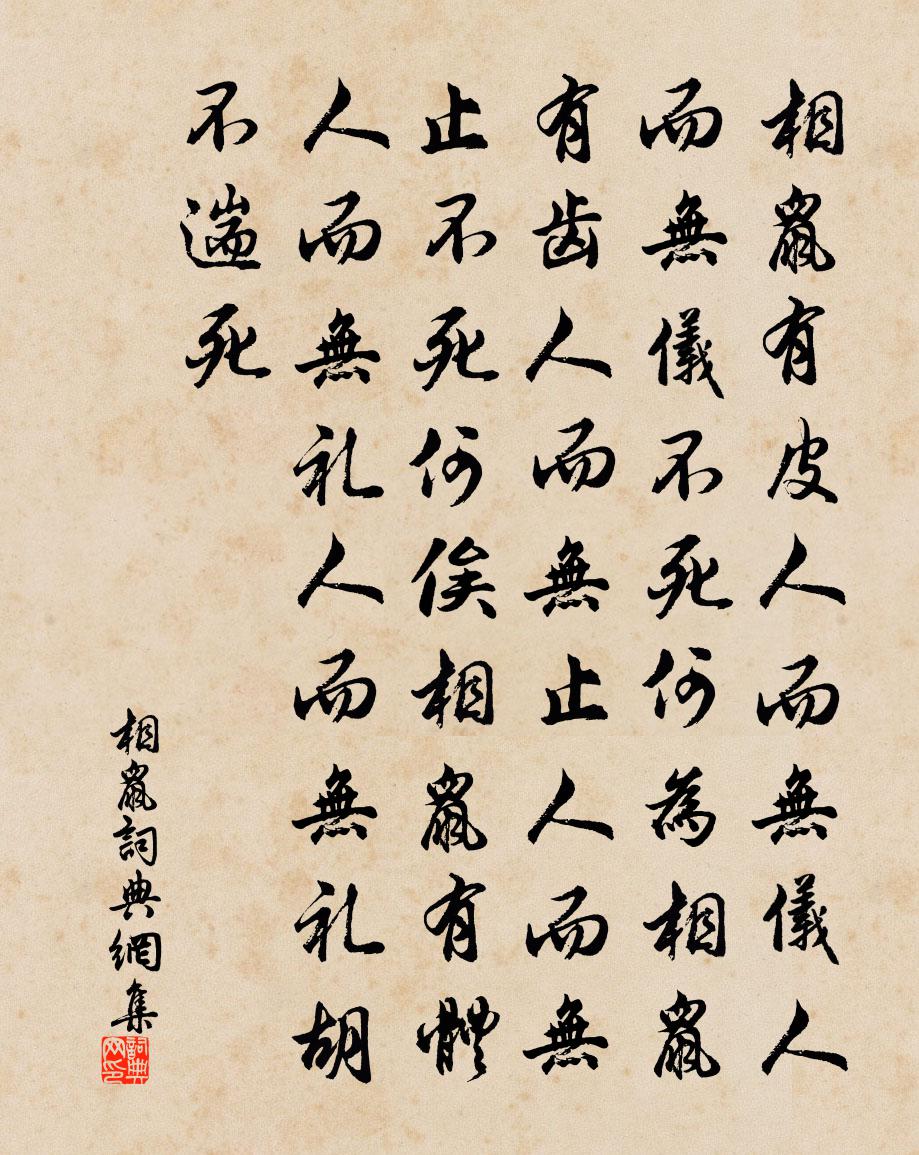 相鼠有皮人而無儀人
而無儀不死何為相鼠
有齒人而無止人而無
止不死何俟相鼠有體
人而無礼人而無礼胡
不遄死
相鼠詞典網集
詞典网印